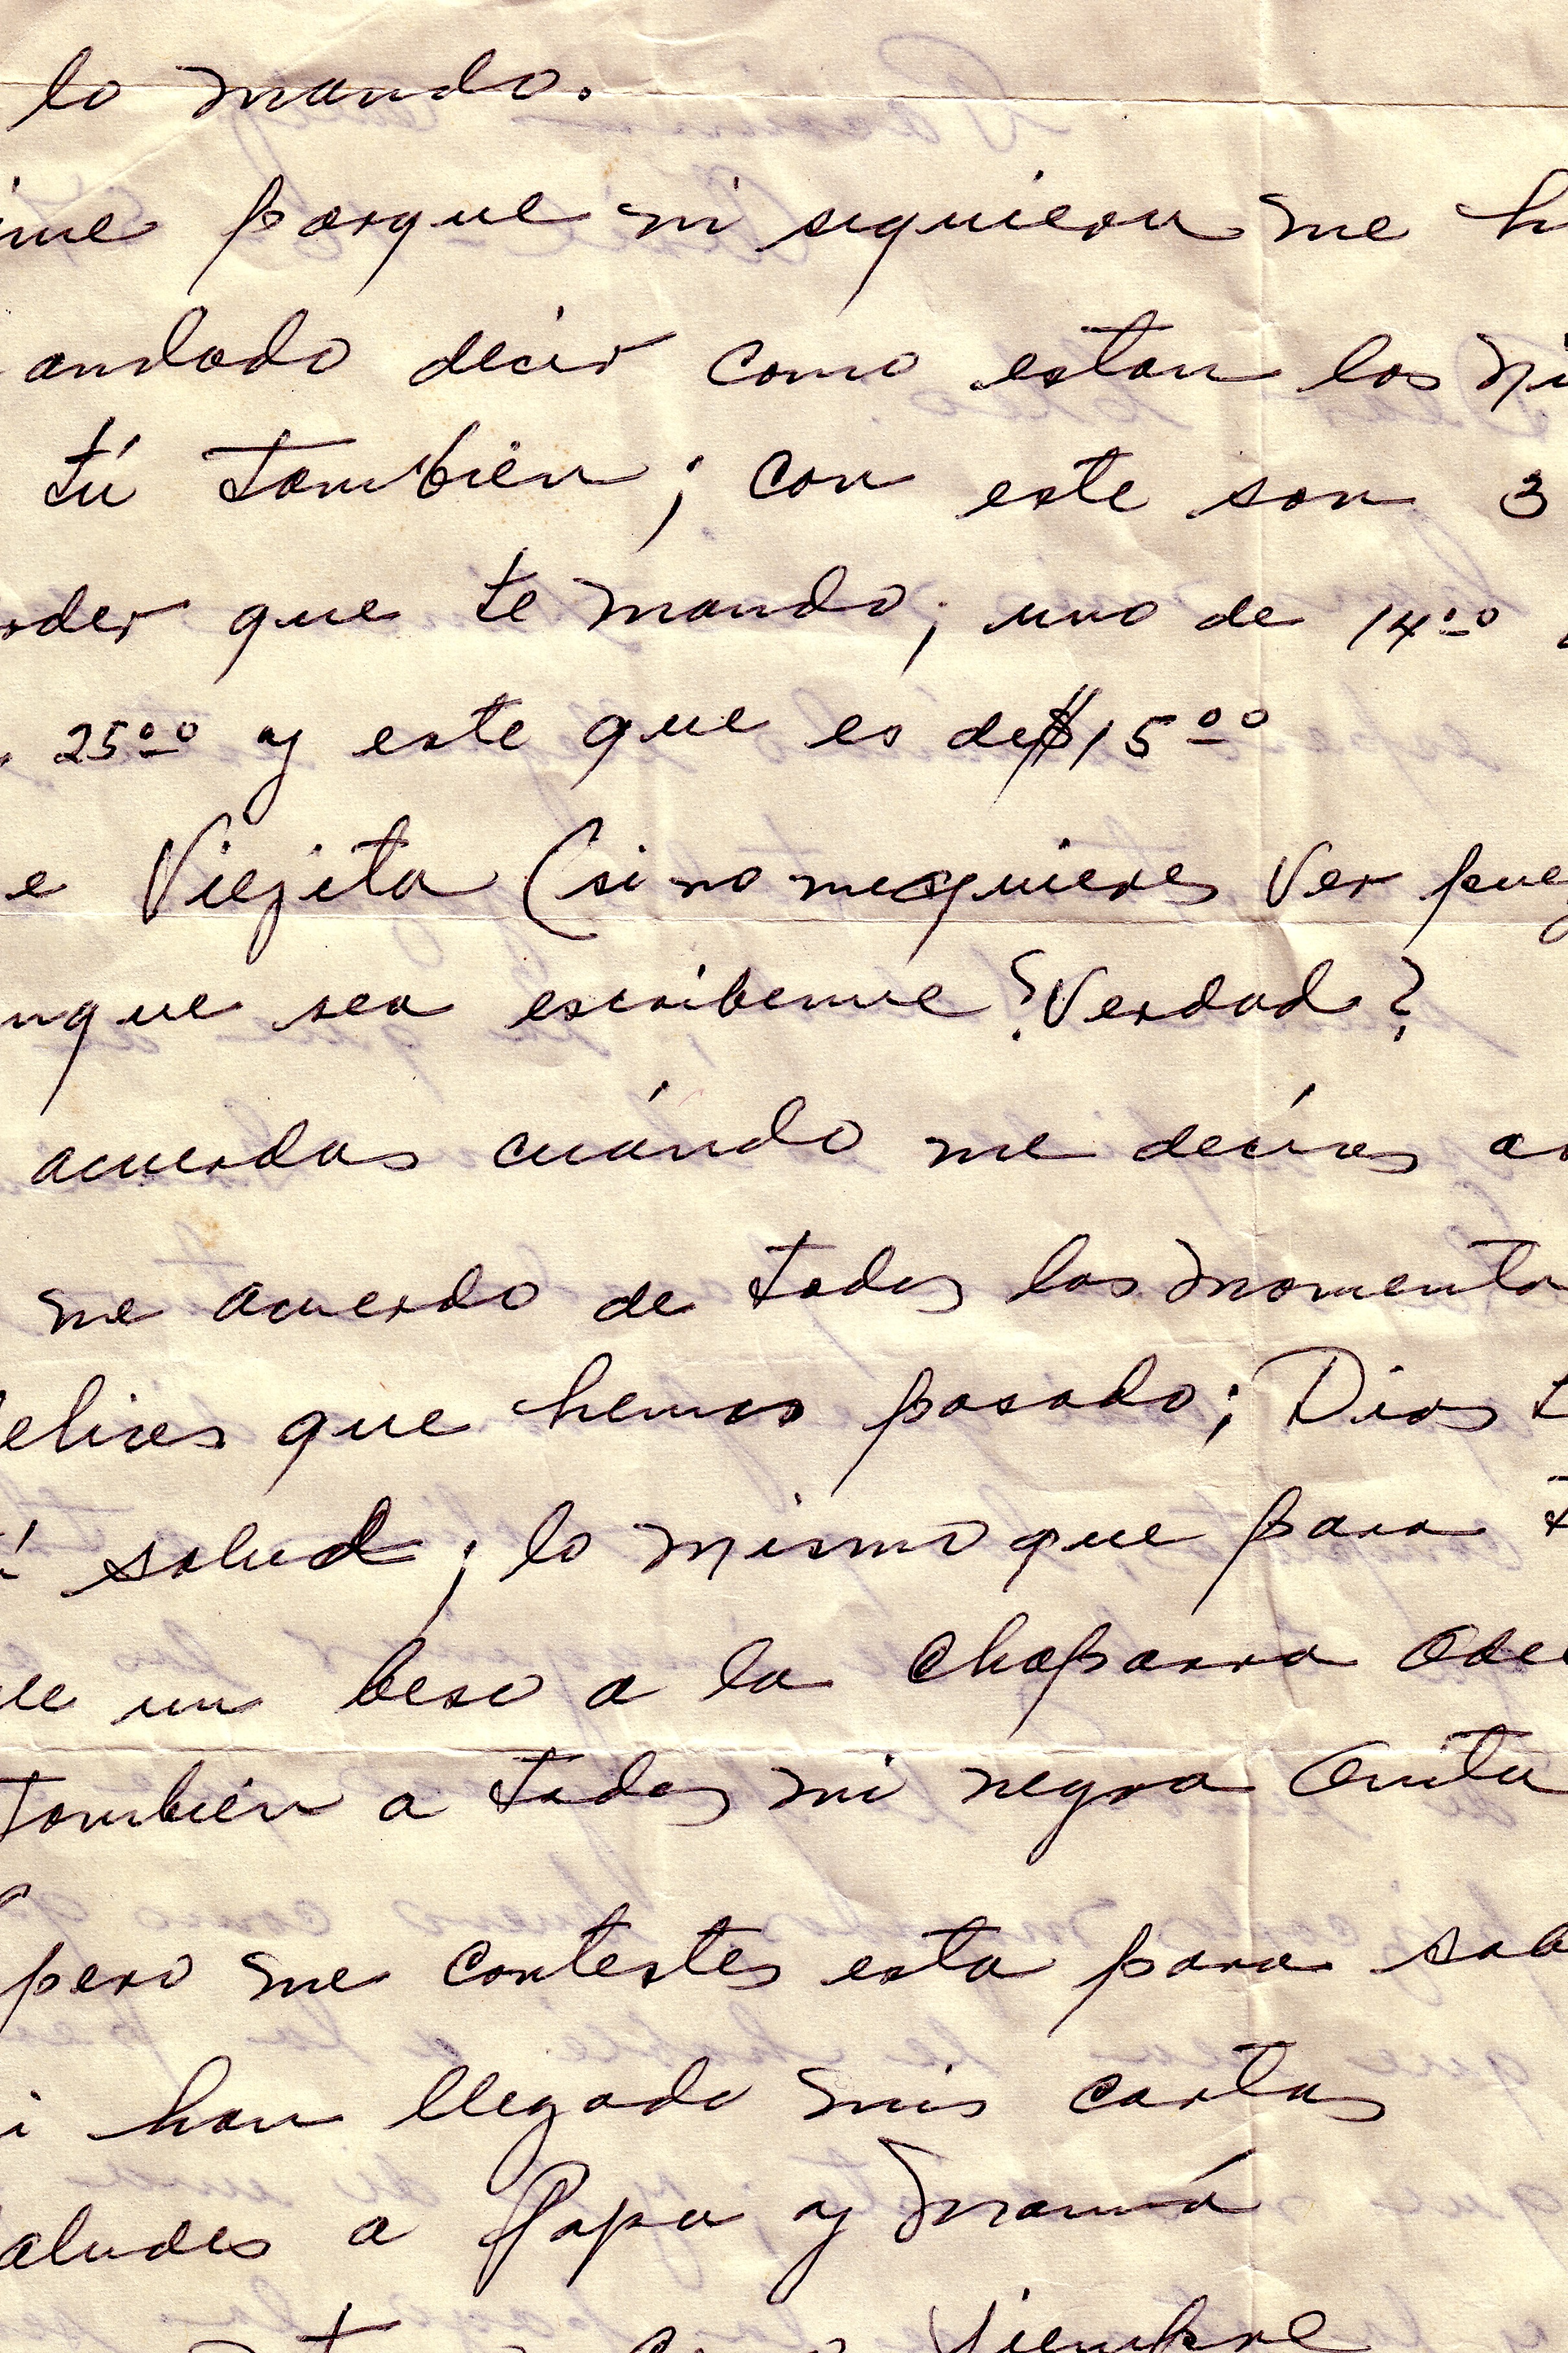 lo mando.
ime porque ni siquiera me h
andado decir como estan los ni
tú tambien; con este son 3
order que te mando; uno de 14.00
25.00 y este que es de $15.00
e Viejita (si no me quieres ver pues
unque sea escribeme ?Verdad?
acuerdas cuándo me decías as
me acuerdo de todos los momento
felices que hemos pasado; Dios t
é salud; lo mismo que para t
le un beso a la chaparra Ode
tambien a todos mi negra Anita
pero me contestes esta para sab
i han llegado mis cartas
aludes a Papa y Mamá
siempre